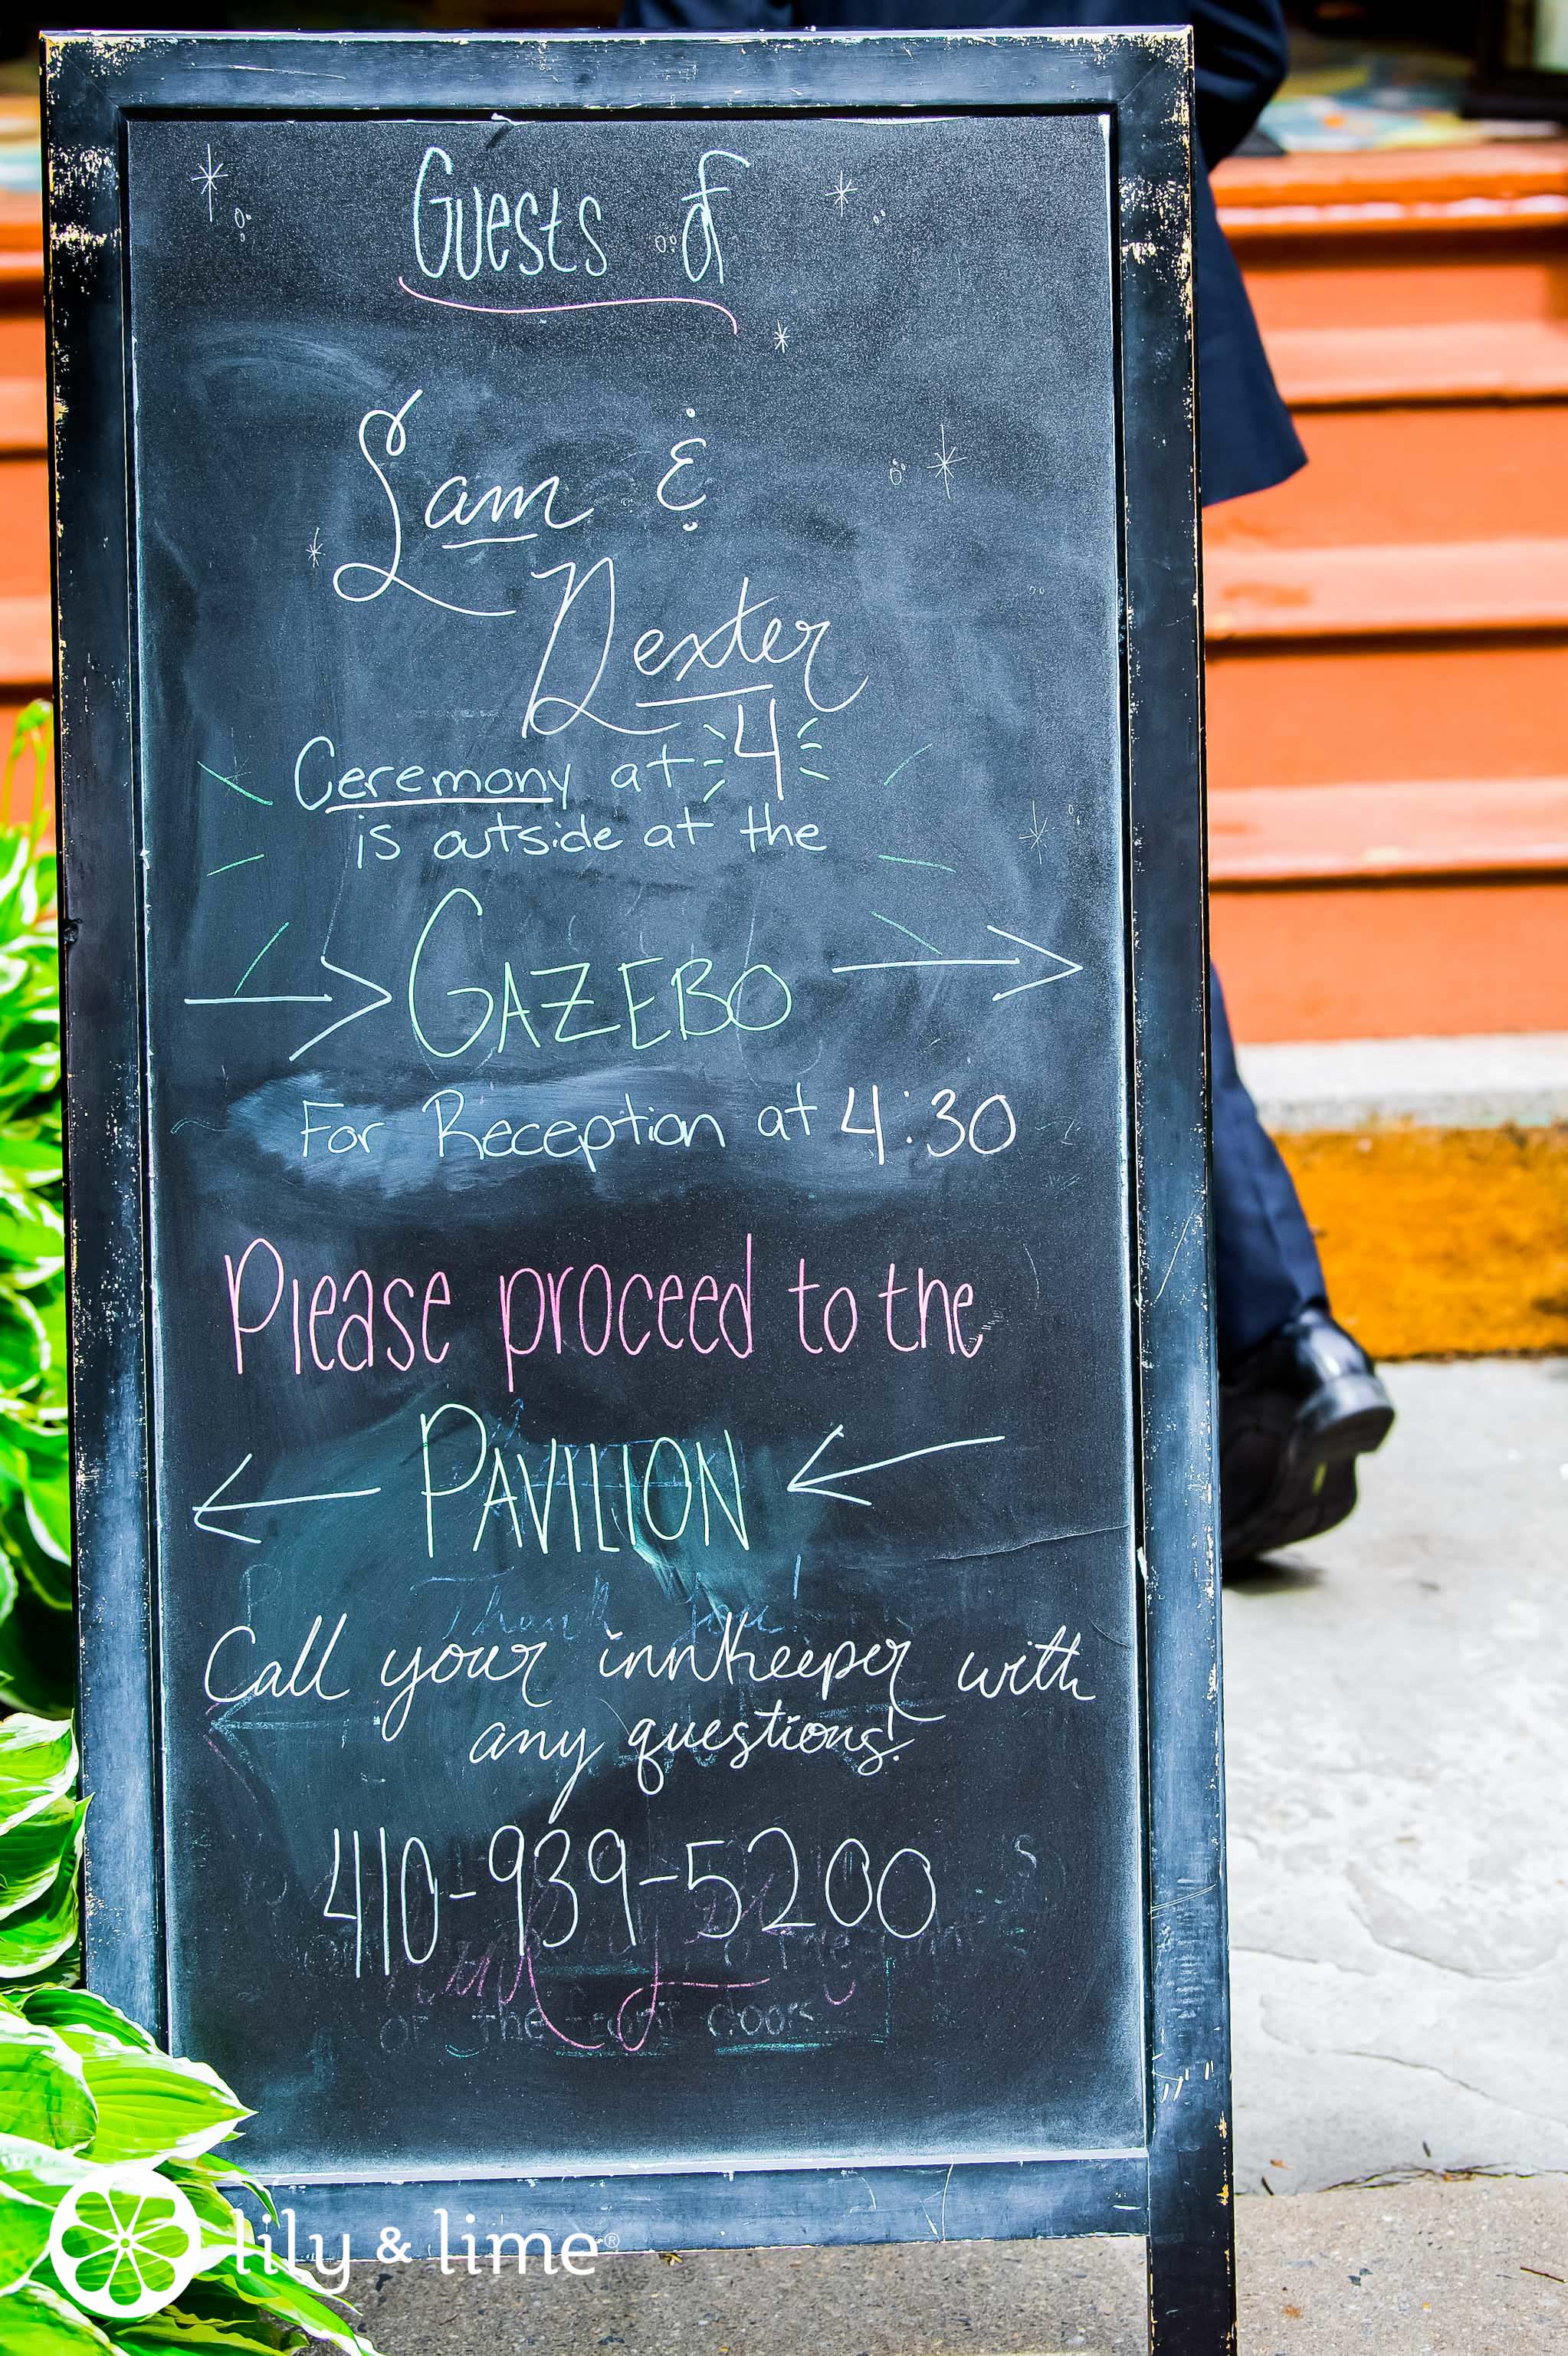 Guests of
Sam &
Dexter
Ceremony at 4
is outside at the
GAZEBO
For Reception at 4:30
Please proceed to the
PAVILION
Thank you!
Call your innkeeper with
any questions!
410-939-5200
of the front doors
lily & lime®